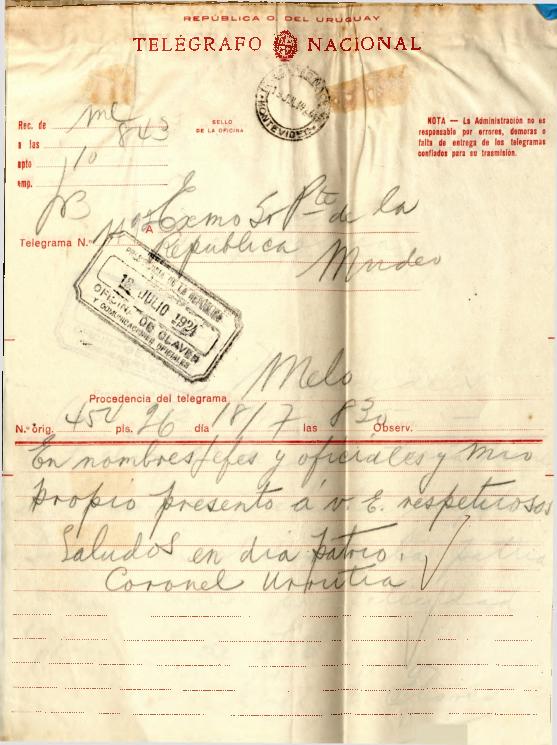 REPÚBLICA O. DEL URUGUAY
TELÉGRAFO NACIONAL
MONTEVIDEO
Rec. de Ml
SELLO
DE LA OFICINA
a las 843
apto 10
emp.
NOTA — La Administración no es
responsable por errores, demoras o
falta de entrega de los telegramas
confiados para su trasmisión.
Telegrama N.°
A Exmo Sr Pte de la
República
Mvdeo
PRESIDENCIA DE LA REPÚBLICA
18 JULIO 1924
OFICINA DE CLAVES
Y COMUNICACIONES OFICIALES
Melo
Procedencia del telegrama
N.° orig. 450 pls. 26 día 18/7 las 830 Observ.
En nombres Jefes y oficiales y mio
propio presento á V. E. respetuosos
saludos en dia patrio.
Coronel Urrutia